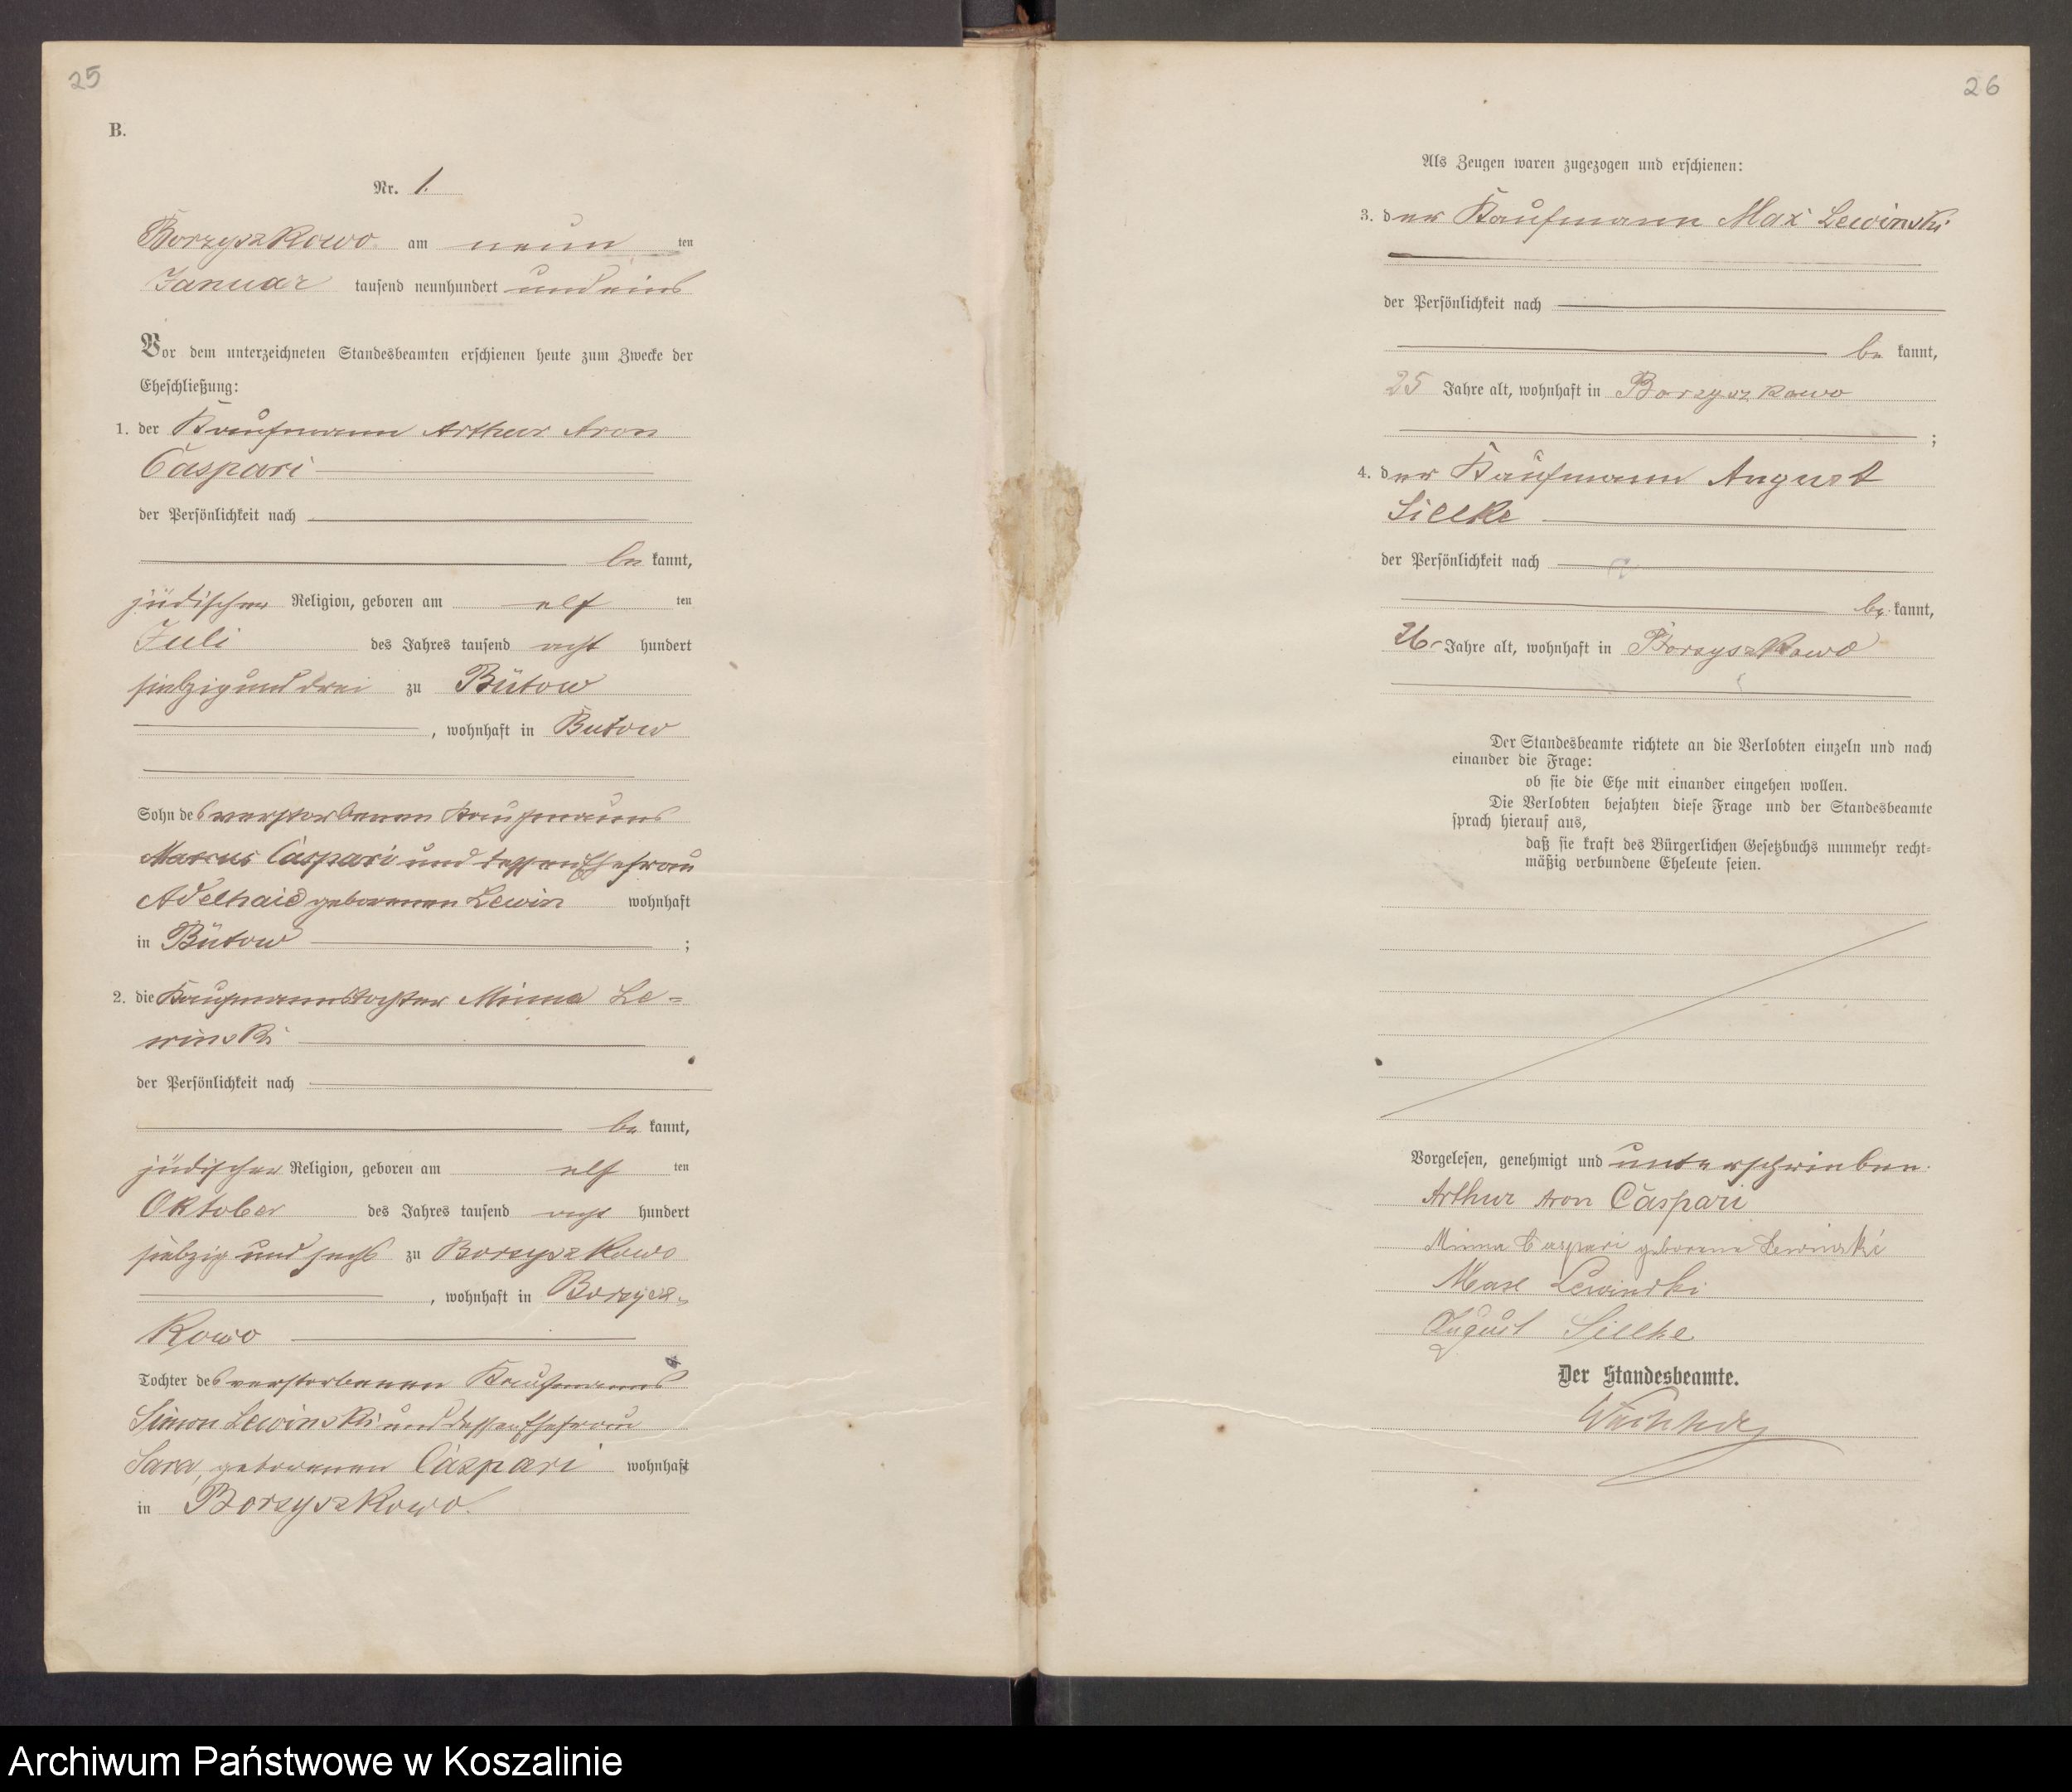 25
B.
Nr. 1.
Borzyszkowo am neun ten
Januar tausend neunhundert und eins
Vor dem unterzeichneten Standesbeamten erschienen heute zum Zwecke der
Eheschließung:
1. der Kaufmann Arthur Aron
Caspari
der Persönlichkeit nach
be kannt,
jüdischer Religion, geboren am elf ten
Juli des Jahres tausend acht hundert
siebzig und drei zu Bütow
, wohnhaft in Butow
Sohn des verstorbenen Kaufmanns
Marcus Caspari und dessen Ehefrau
Adelhaid geborenen Lewin wohnhaft
in Bütow ;
2. die Kaufmannstochter Minna Le=
winski
der Persönlichkeit nach
be kannt,
jüdischer Religion, geboren am elf ten
Oktober des Jahres tausend acht hundert
siebzig und sechs zu Borzyszkowo
, wohnhaft in Borzysz=
kowo
Tochter des verstorbenen Kaufmanns
Simon Lewinski und dessen Ehefrau
Sara, geborenen Caspari wohnhaft
in Borzyszkowo.
26
Als Zeugen waren zugezogen und erschienen:
3. der Kaufmann Max Lewinski
der Persönlichkeit nach
be kannt,
25 Jahre alt, wohnhaft in Borzyszkowo
;
4. der Kaufmann August
Sielke
der Persönlichkeit nach
be kannt,
26 Jahre alt, wohnhaft in Borzyszkowo
Der Standesbeamte richtete an die Verlobten einzeln und nach
einander die Frage:
ob sie die Ehe mit einander eingehen wollen.
Die Verlobten bejahten diese Frage und der Standesbeamte
sprach hierauf aus,
daß sie kraft des Bürgerlichen Gesetzbuchs nunmehr recht=
mäßig verbundene Eheleute seien.
Vorgelesen, genehmigt und unterschrieben.
Arthur Aron Caspari
Minna Caspari geborene Lewinski
Max Lewinski
August Sielke
Der Standesbeamte.
Archiwum Państwowe w Koszalinie